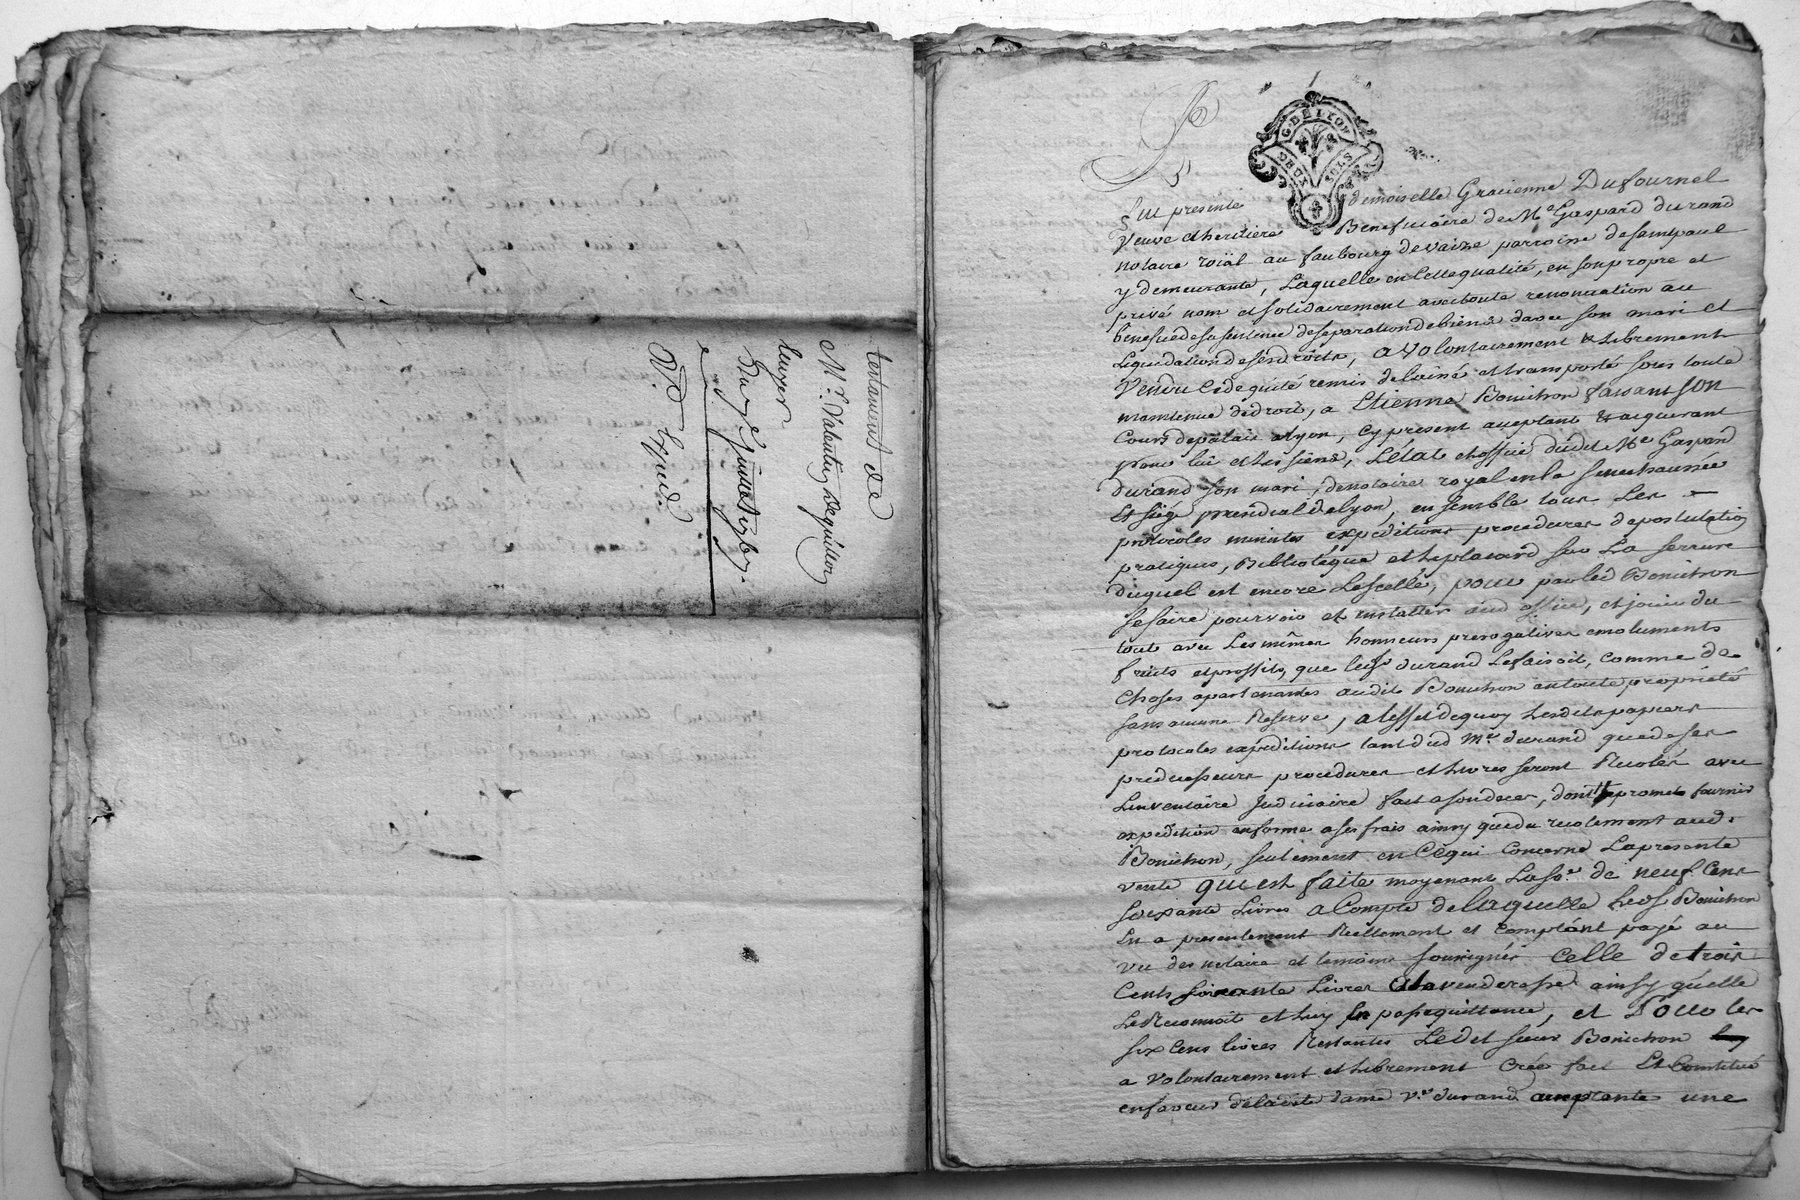 testament de
Mr. Valentin Deguillon
luzer
Du 7e
Exped.
G. DE LYON
DEUX SOLS
Fut presente demoiselle Gracienne Dufournel
Veuve et heritiere Beneficiaire de Me Gaspard durand
notaire roïal au faubourg devaize parroisse desaintpaul
y demeurante, Laquelle en Cettequalité, en sonpropre et
privé nom et solidairement avectoute renonciation au
benefice desasentence deseparationdebiens davec son mari et
Liquidation desesdroits, a Volontairement & Librement
Vendu Cedé quité remis delaissé et transporté sous toute
maintenue dedroit, a Etienne Bonichon faisant son
Cours depalais alyon, Cy present acceptant & acquerant
pour lui et Les siens, L'état et office dudit Me Gaspard
durand son mari, denotaire royal en la senechaussée
Et siége presidial de Lyon, ensemble tous Les
protocoles minutes expéditions procedures depostulation
pratiques, Bibliotéque et leplacard sur La serrure
duquel est encore Lescellé, pour par led Bonichon
sefaire pourvoir et installer aud office, et jouir du
tout avec Les mêmes honneurs prerogatives emoluments
fruits et proffits que led sr durand Lefaisoit, comme de
Choses apartenantes audit Bonichon en toute propriété
sans aucune Reserve, a l'effet dequoy Lesdits papiers
protocoles expéditions tant dud Me. durand que de ses
predecesseurs procedures et Livres seront Recolés avec
Linventaire Judiciaire fait a son deces, dont promet fournir
expedition en forme a ses frais ainsy que du recolement aud.
Bonichon, seulement en Cequi Concerne Lapresente
vente qui est faite moyenant La so.e de neuf Cens
soixante Livres a Compte de laquelle Led s Bonichon
En a presentement Réellement et Comptant payé au
vu des notaire et temoins soussignés Celle de trois
Cents soixante Livres a la venderesse ainsy qu'elle
Le Reconnoit et Luy en passe quittance, et Pour les
six Cens livres Restantes Ledit sieur Bonichon
a Volontairement et Librement Créé fait Et Constitué
en faveur de ladite dame v.ve durand acceptante une